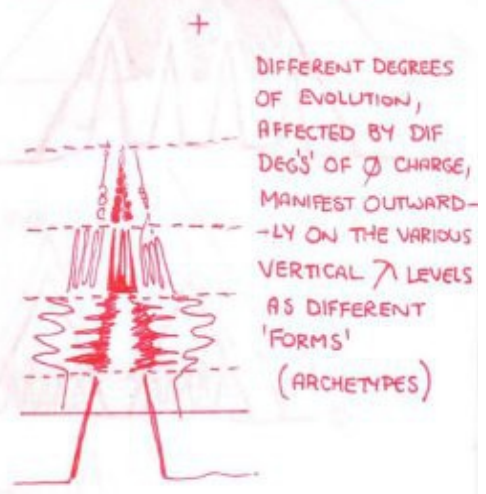 +
DIFFERENT DEGREES
OF EVOLUTION,
AFFECTED BY DIF
DEG'S' OF Ø CHARGE,
MANIFEST OUTWARD-
-LY ON THE VARIOUS
VERTICAL λ LEVELS
AS DIFFERENT
'FORMS'
(ARCHETYPES)